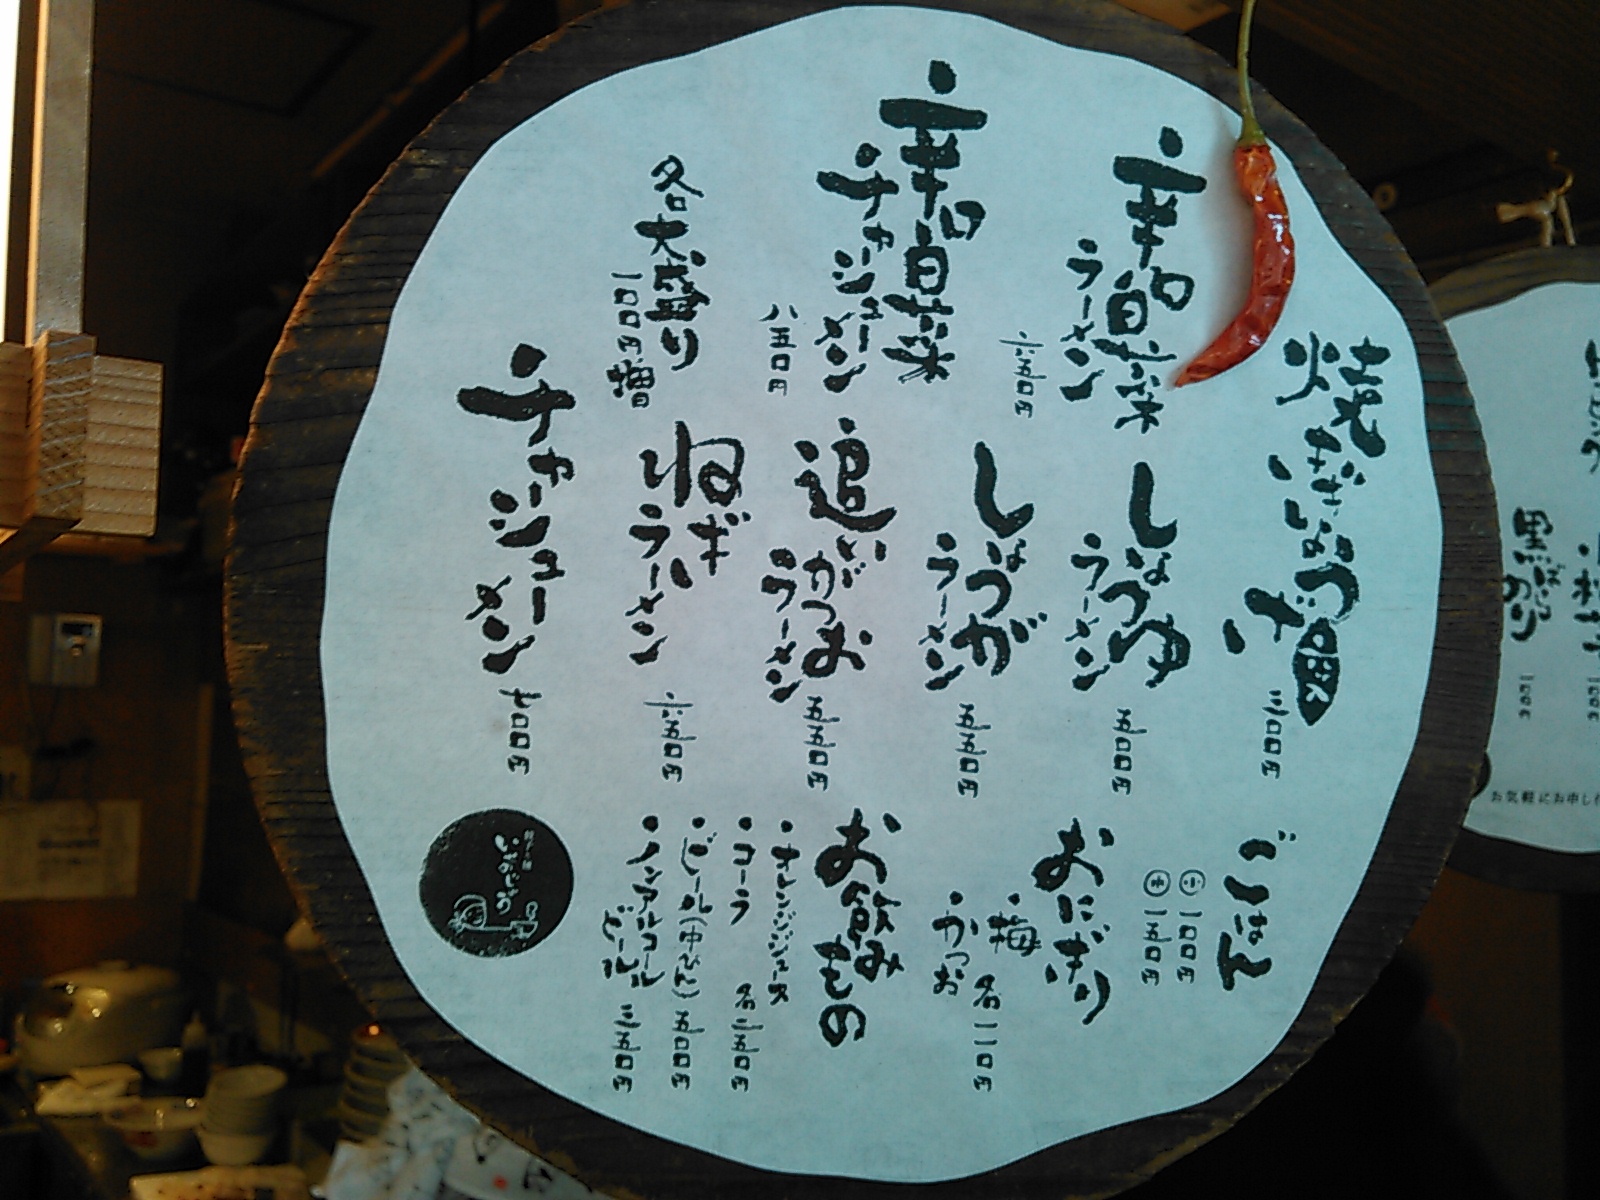 辛口白菜
ラーメン
六五〇円
辛口白菜
チャーシューメン
八五〇円
各大盛り
一〇〇円増
焼ぎょうざ
三〇〇円
しょうゆ
ラーメン
五〇〇円
しょうが
ラーメン
五五〇円
追いがつお
ラーメン
五五〇円
ねぎ
ラーメン
六五〇円
チャーシュー
メン
七〇〇円
ごはん
㊥一〇〇円
おにぎり
・梅
・かつお
各一一〇円
お飲みもの
・オレンジジュース
・コーラ
各二五〇円
・ビール(中びん)五〇〇円
・ノンアルコール
ビール
三五〇円
黒ばらのり
一〇〇円
お気軽にお申し